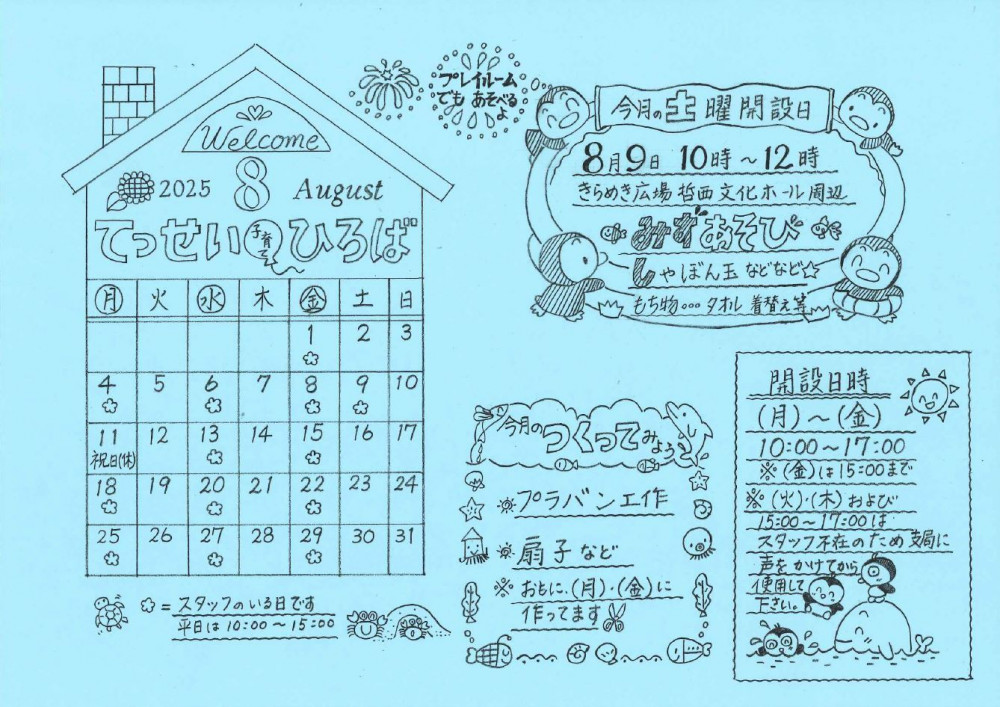 Welcome
2025 8 August
てっせい子育てひろば
月 火 水 木 金 土 日
1 2 3
4 5 6 7 8 9 10
11 12 13 14 15 16 17
祝日(休)
18 19 20 21 22 23 24
25 26 27 28 29 30 31
= スタッフのいる日です
平日は10:00〜15:00
プレイルーム
でもあそべる
よ
今月の土曜開設日
8月9日 10時〜12時
きらめき広場哲西文化ホール周辺
みずあそび
しゃぼん玉などなど☆
もち物…タオル 着替え等
今月のつくってみよう
プラバン工作
扇子など
※おもに、(月)・(金)に
作ってます
開設日時
(月)〜(金)
10:00〜17:00
※(金)は15:00まで
※(火)・(木)および
15:00〜17:00は
スタッフ不在のため支局に
声をかけてから
使用して
下さい。